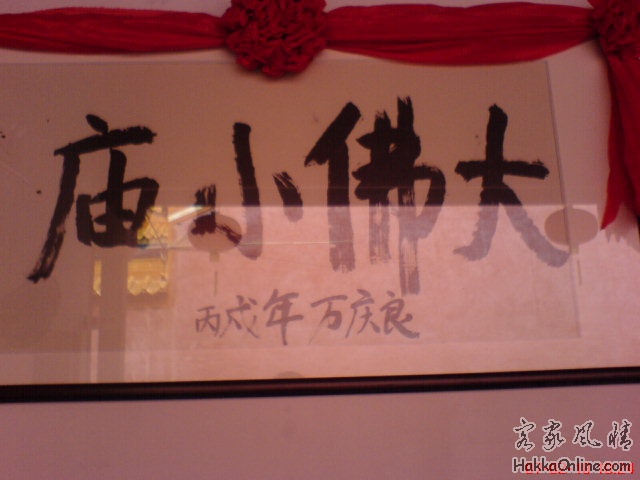 大佛小庙
丙戌年 万庆良
客家风情
HakkaOnline.com